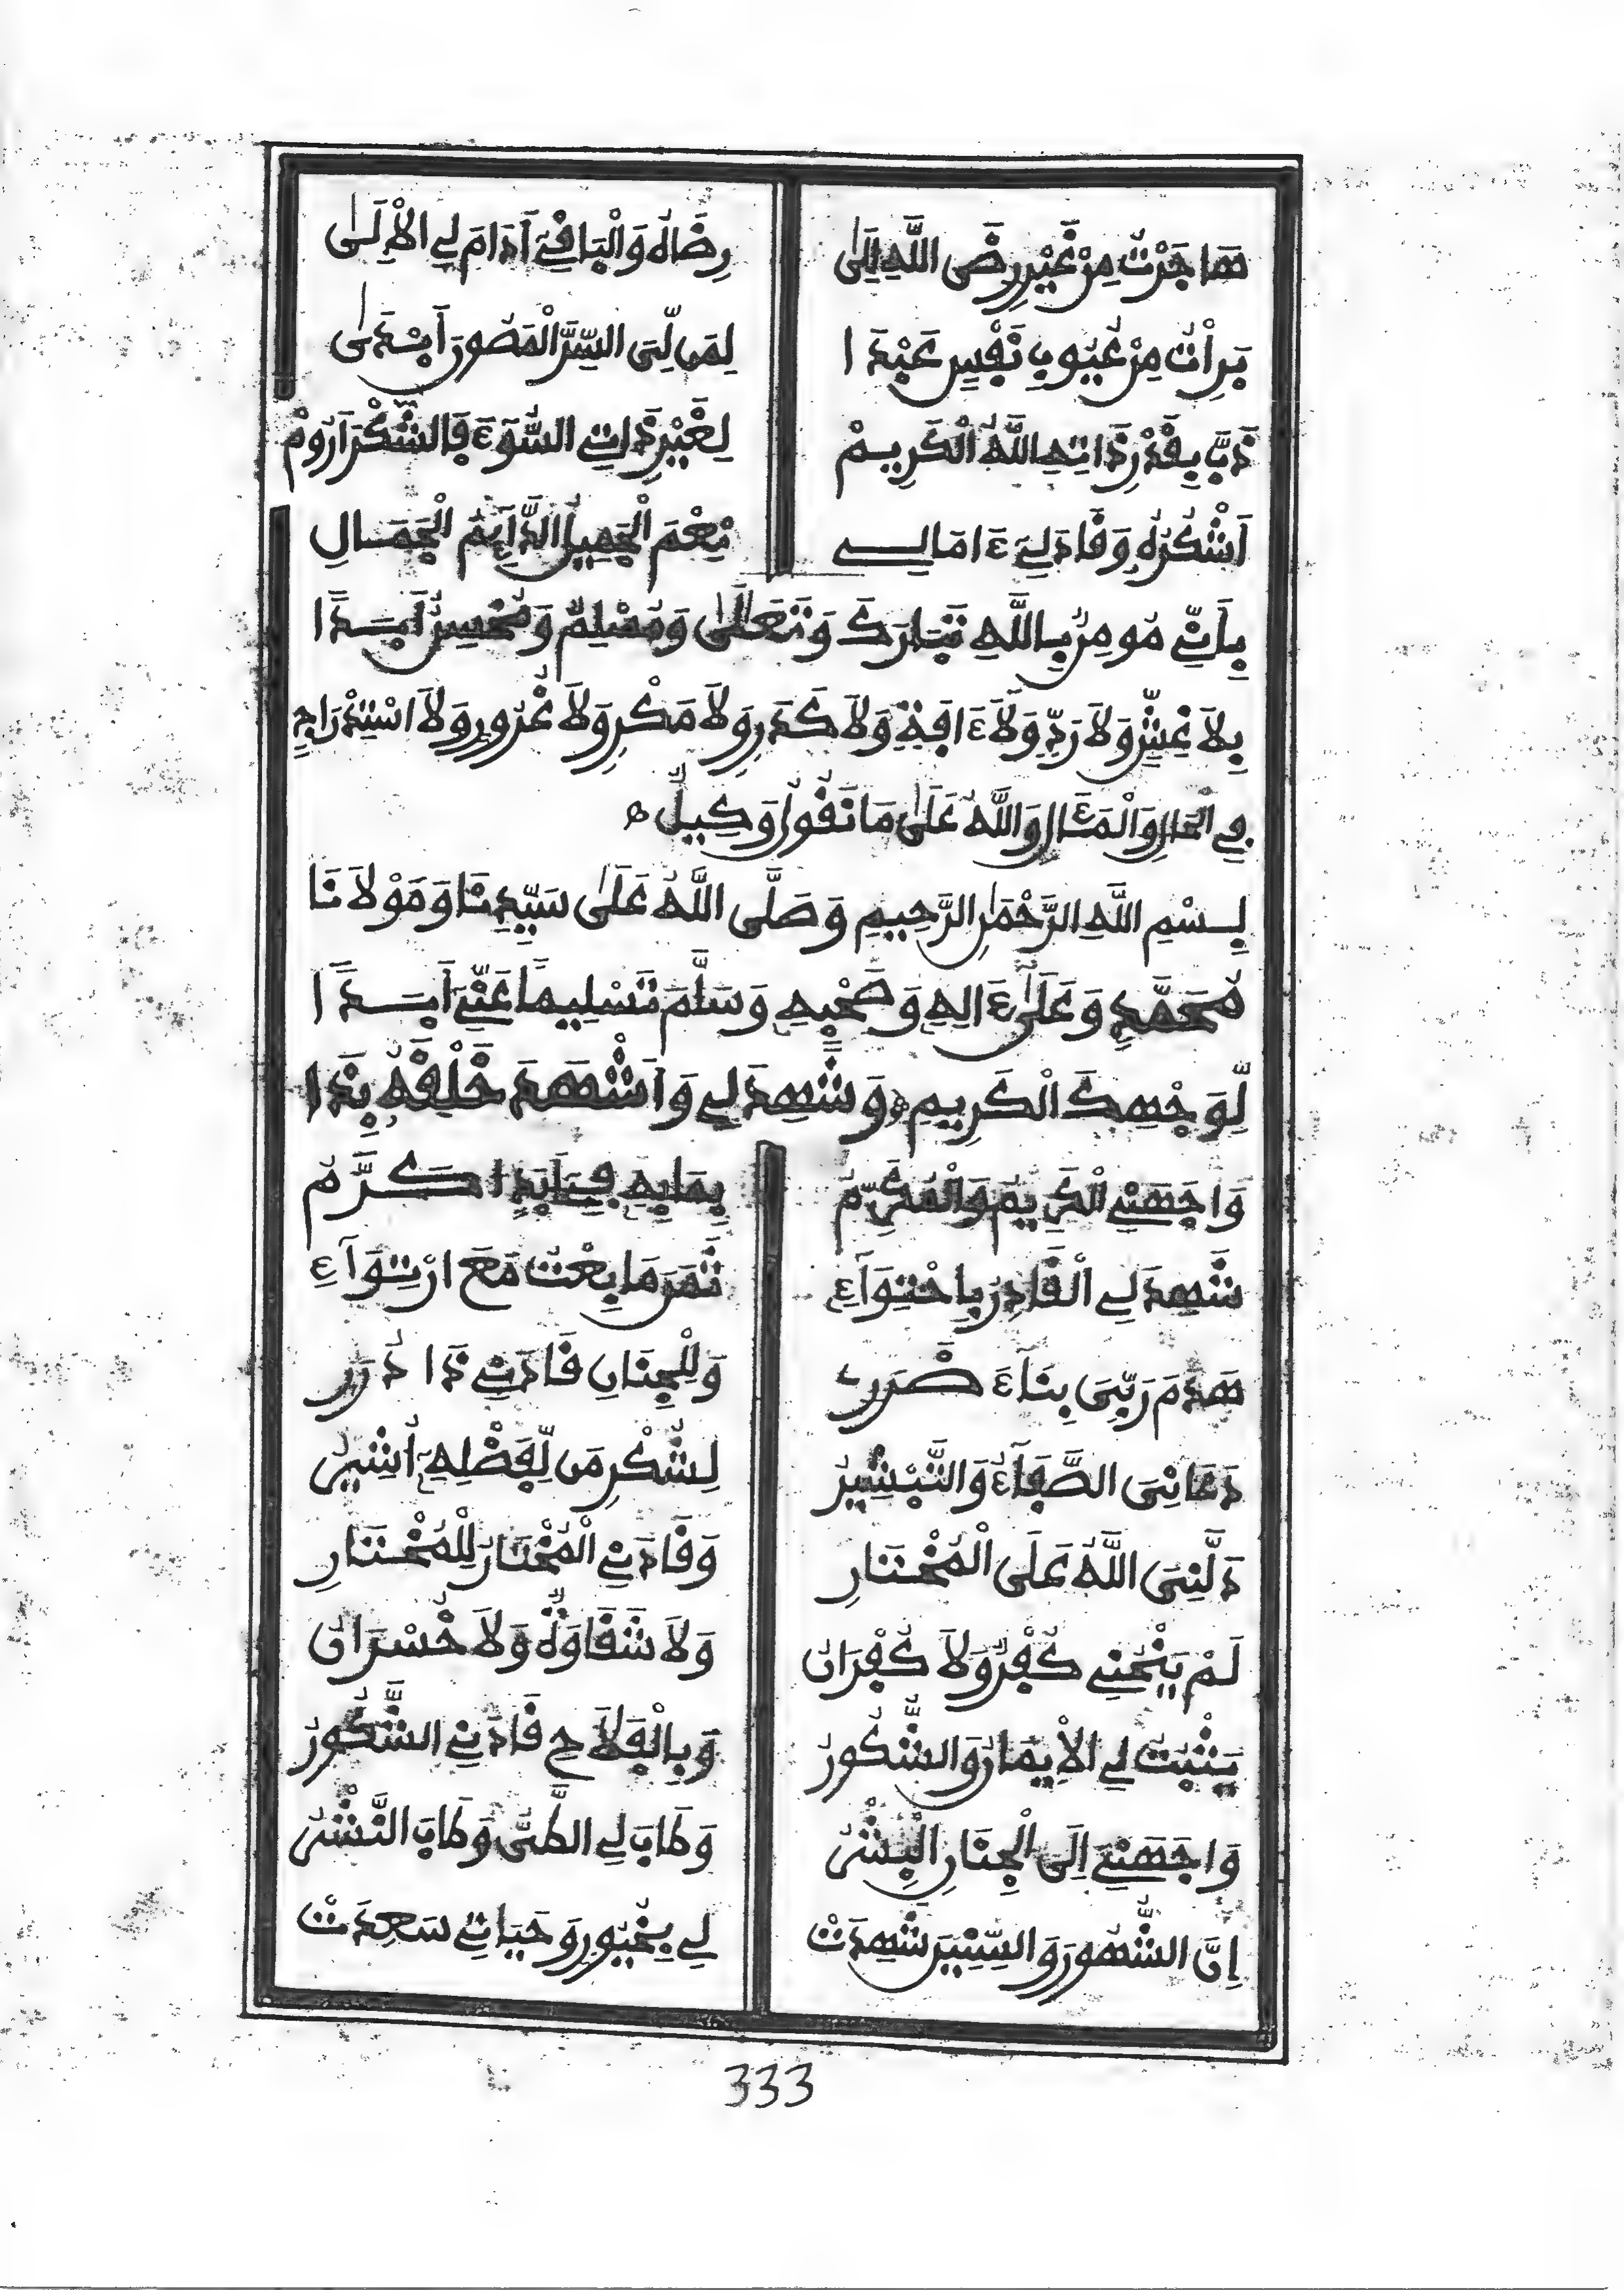 هَاجَرْتُ مِنْ غَيْرِ رِضَى اللَّهِ إِلَى رِضَاهُ وَالْبَاقِي أَدَامَ لِي الْإِلَى
بَرِأْتُ مِنْ عُيُوبِ نَفْسٍ عَبْدَا لِمَن لِّيَ السِّرَّ الْمَصُونَ أَبْدَى
ذَبَّ بِقَدْرِ ذَاتِهِ اللَّهُ الْكَرِيمْ لِغَيْرِ ذَاتِي السُّوءَ فَالشُّكْرَ أَرُومْ
أَشْكُرُهُ وَقَادَ لِي ءَامَالِي نِعْمَ الْجَمِيلُ الدَّائِمُ الْجَمَالِ
بِأَنِّي مُومِنٌ بِاللَّهِ تَبَارَكَ وَتَعَالَى وَمُسْلِمٌ وَمُحْسِنٌ أَبَدًا
بِلَا غِشٍّ وَلَا رَدٍّ وَلَا ءَافَةٍ وَلَا كَدَرٍ وَلَا مَكْرٍ وَلَا غُرُورٍ وَلَا اسْتِدْرَاجٍ
فِي الْحَالِ وَالْمَئَالِ وَاللَّهُ عَلَى مَا نَقُولُ وَكِيلٌ
بِسْمِ اللَّهِ الرَّحْمَنِ الرَّحِيمِ وَصَلَّى اللَّهُ عَلَى سَيِّدِنَا وَمَوْلَانَا
مُحَمَّدٍ وَعَلَى ءَالِهِ وَصَحْبِهِ وَسَلَّمَ تَسْلِيمًا عَنِّي أَبَدًا
لِّوَجْهِكَ الْكَرِيمِ وَشَهِدَ لِي وَأَشْهَدَ خَلْقَهُ بِذَا
وَاجَهَنِي الْكَرِيمُ وَالْمُكَرِّمُ بِمَا بِهِ فِي أَبَدٍ أُكَرَّمُ
شَهِدَ لِي الْقَادِرُ بِاحْتِوَاءِ ثَمَنَ مَا بِعْتُ مَعَ ارْتِوَاءِ
هَدَمَ رَبِّيَ بِنَاءَ ضَرَرِ وَلِلْجِنَانِ قَادَنِي ذَا دُرَرِ
دَعَانِيَ الصَّفَاءُ وَالتَّبْشِيرُ لِشُكْرِ مَن لِّفَضْلِهِ أُشِيرُ
دَلَّنِيَ اللَّهُ عَلَى الْمُخْتَارِ وَقَادَنِي الْمُخْتَارُ لِلْمُخْتَارِ
لَمْ يَنْحُنِي كُفْرٌ وَلَا كُفْرَانُ وَلَا شَقَاوَةٌ وَلَا خُسْرَانُ
يَثْبُتُ لِي الْإِيمَانُ وَالشُّكُورُ وَبِالْفَلَاحِ قَادَنِي الشَّكُورُ
وَاجَهَنِي إِلَى الْجِنَانِ الْبِشْرُ وَطَابَ لِي الطَّيُّ وَطَابَ النَّشْرُ
إِنَّ الشُّهُورَ وَالسِّنِينَ شَهِدَتْ لِي بِخُيُورٍ وَحَيَاتِي سَعِدَتْ
333